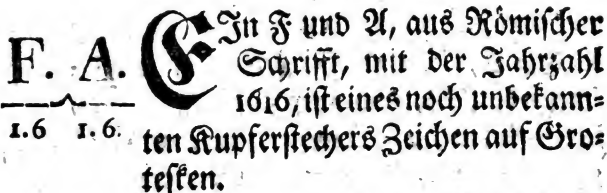 F. A.
1.6 1.6.
EJn F und A, aus Römischer
Schrifft, mit der Jahrzahl
1616, ist eines noch unbekann=
ten Kupferstechers Zeichen auf Gro=
tesken.